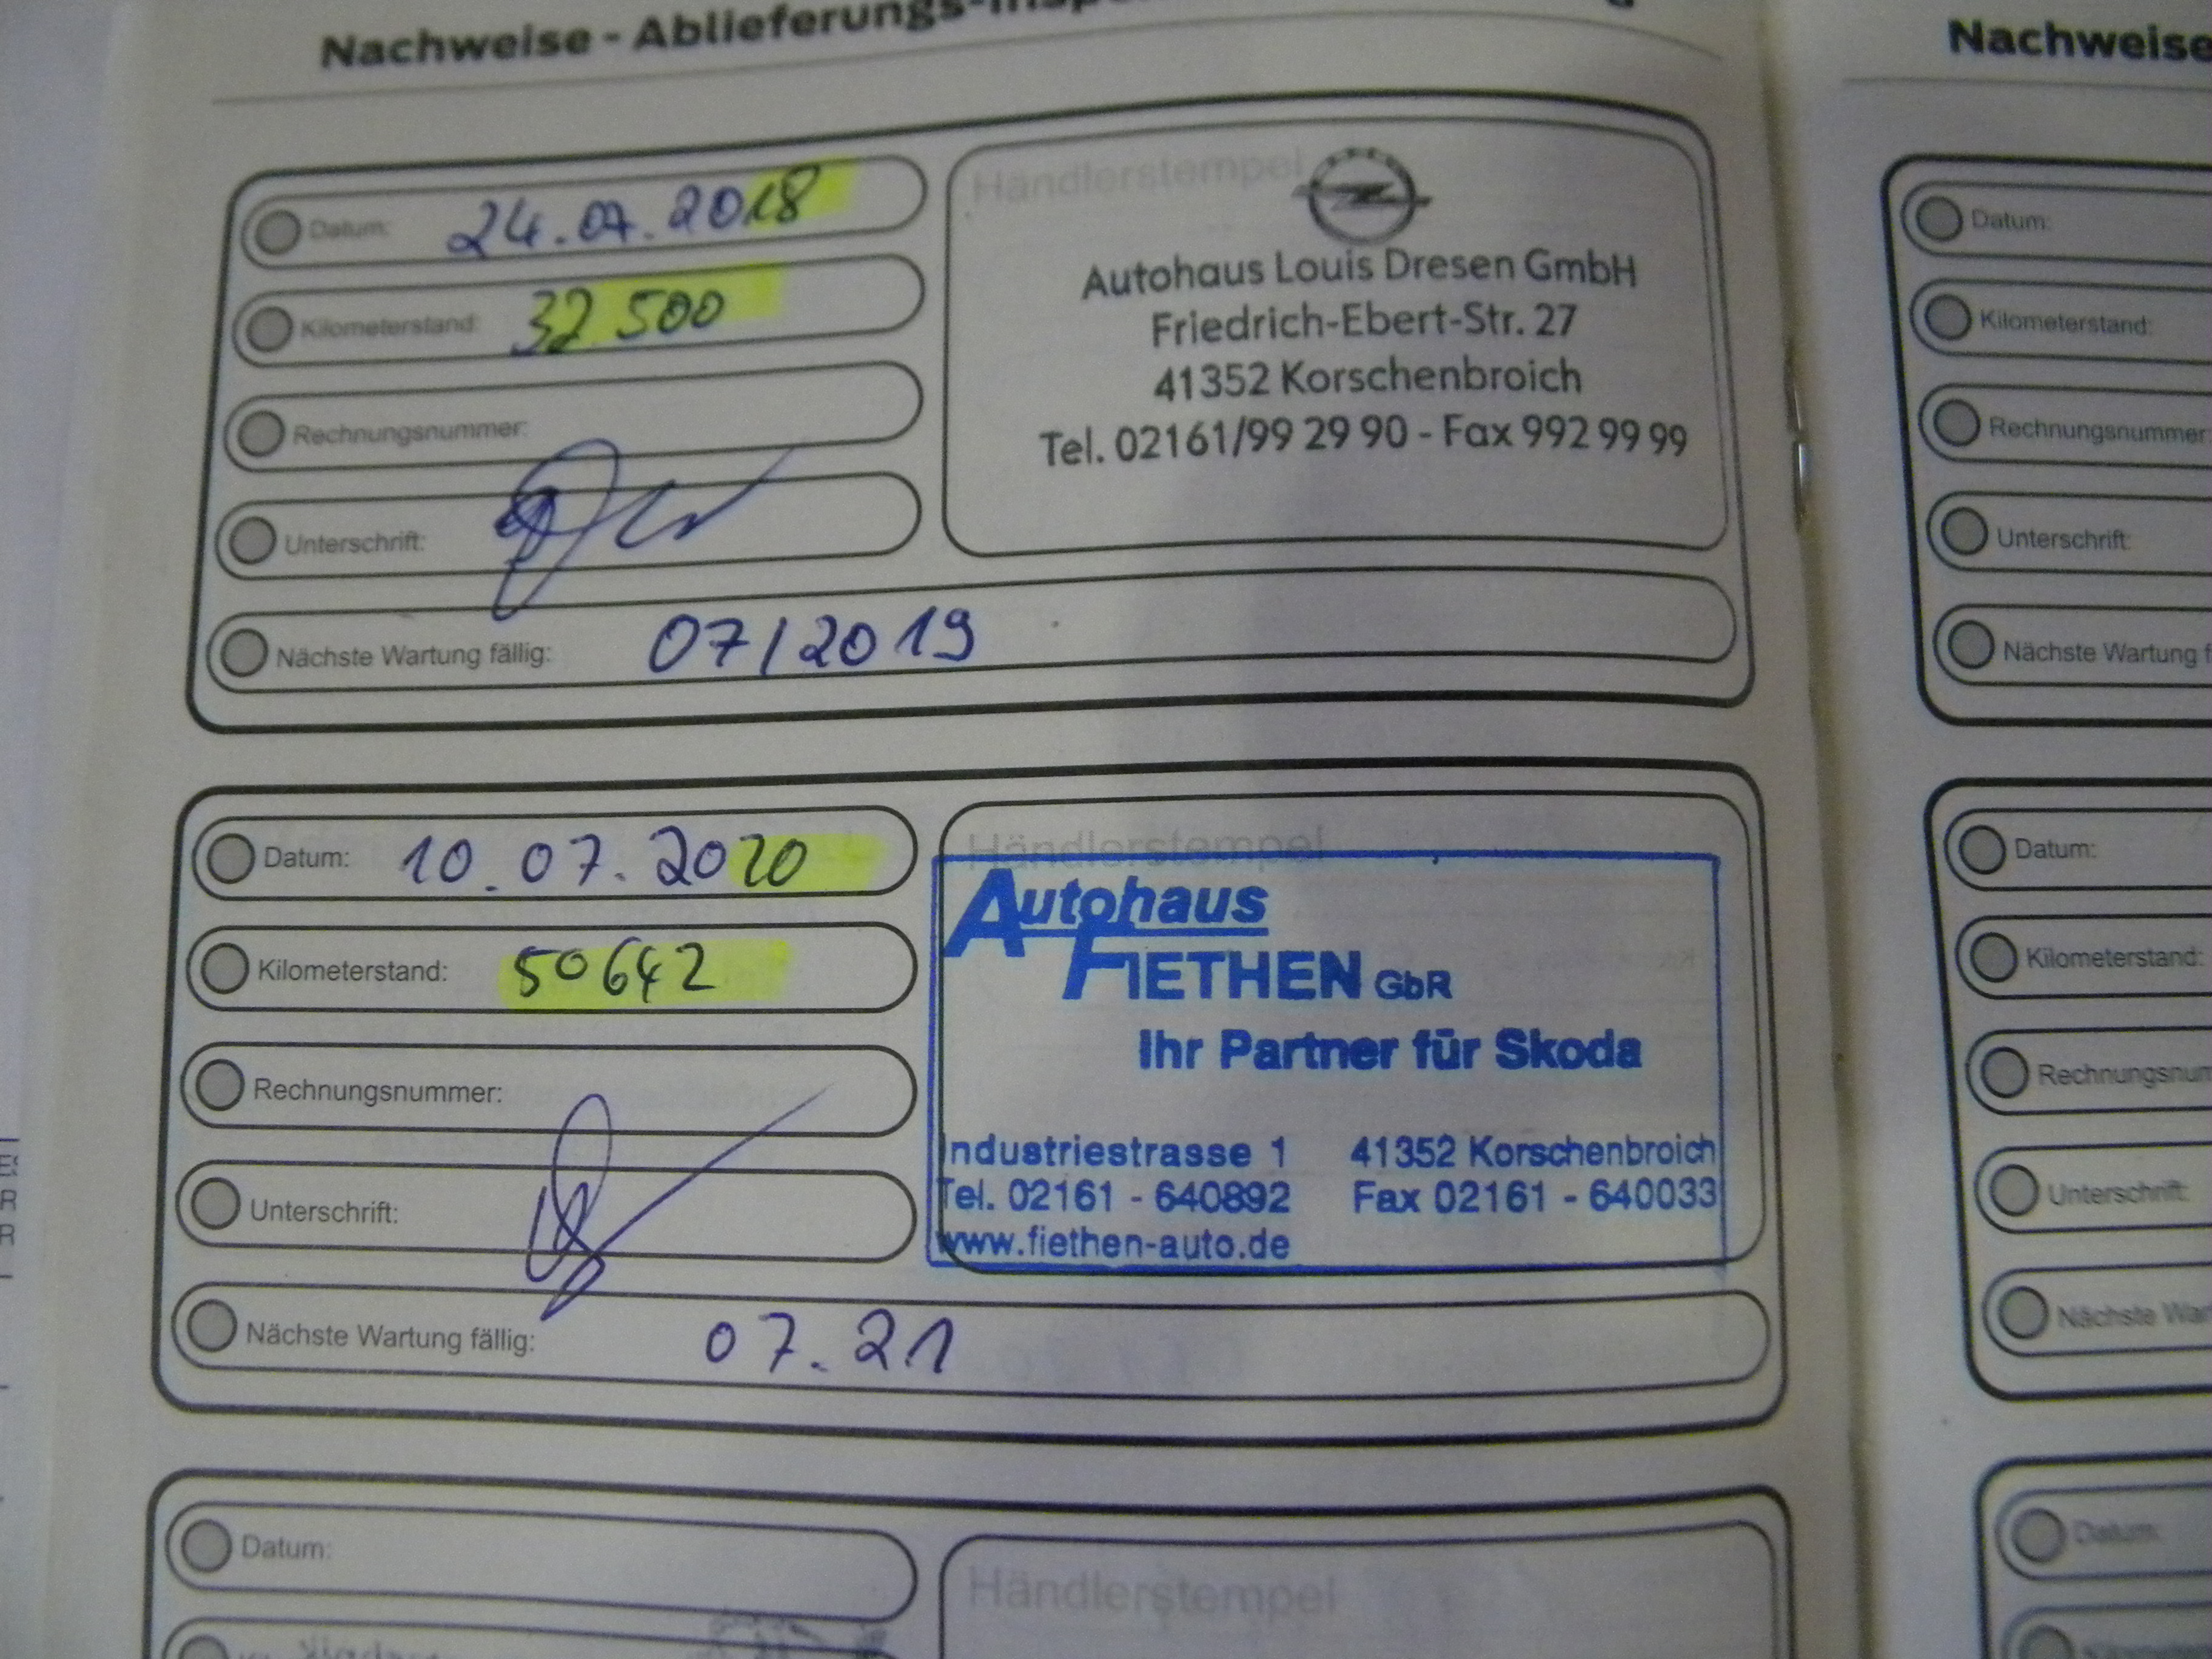 Nachweise - Ablieferungs-Insp
Datum: 24.07.2018
Kilometerstand: 32 500
Rechnungsnummer:
Unterschrift:
Nächste Wartung fällig: 07/2019
Händlerstempel
Autohaus Louis Dresen GmbH
Friedrich-Ebert-Str. 27
41352 Korschenbroich
Tel. 02161/99 29 90 - Fax 992 99 99
Datum: 10.07.2020
Kilometerstand: 50642
Rechnungsnummer:
Unterschrift:
Nächste Wartung fällig: 07.21
Händlerstempel
Autohaus
FIETHEN GbR
Ihr Partner für Skoda
Industriestrasse 1 41352 Korschenbroich
Tel. 02161 - 640892 Fax 02161 - 640033
www.fiethen-auto.de
Datum:
Händlerstempel
Nachweise
Datum:
Kilometerstand:
Rechnungsnummer
Unterschrift:
Nächste Wartung f
Datum:
Kilometerstand:
Rechnungsnum
Unterschrift:
Nächste War
Datum: